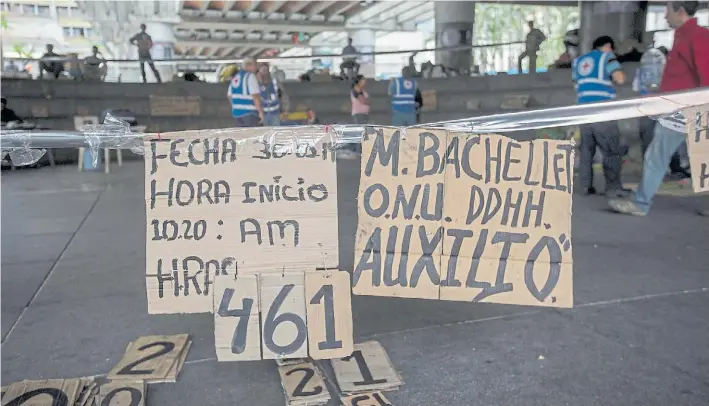 FECHA 30-05-
HORA INICIO
10.20 : AM
HRAS
461
"M. BACHELLET
O.N.U. DDHH.
AUXILIO"
2
2
1
2